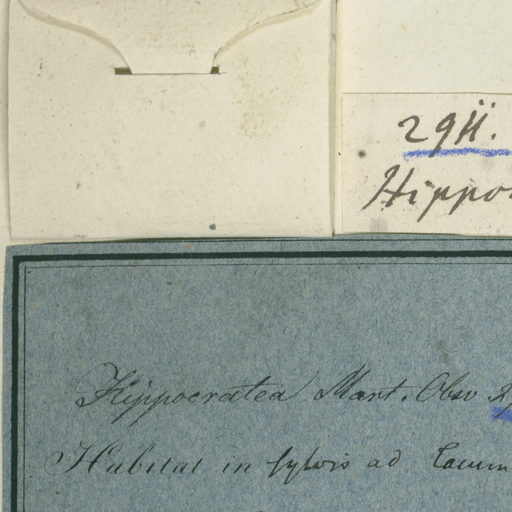 2911.
Hippo
Hippocratea Mart. Obs
Habitat in sylvis ad